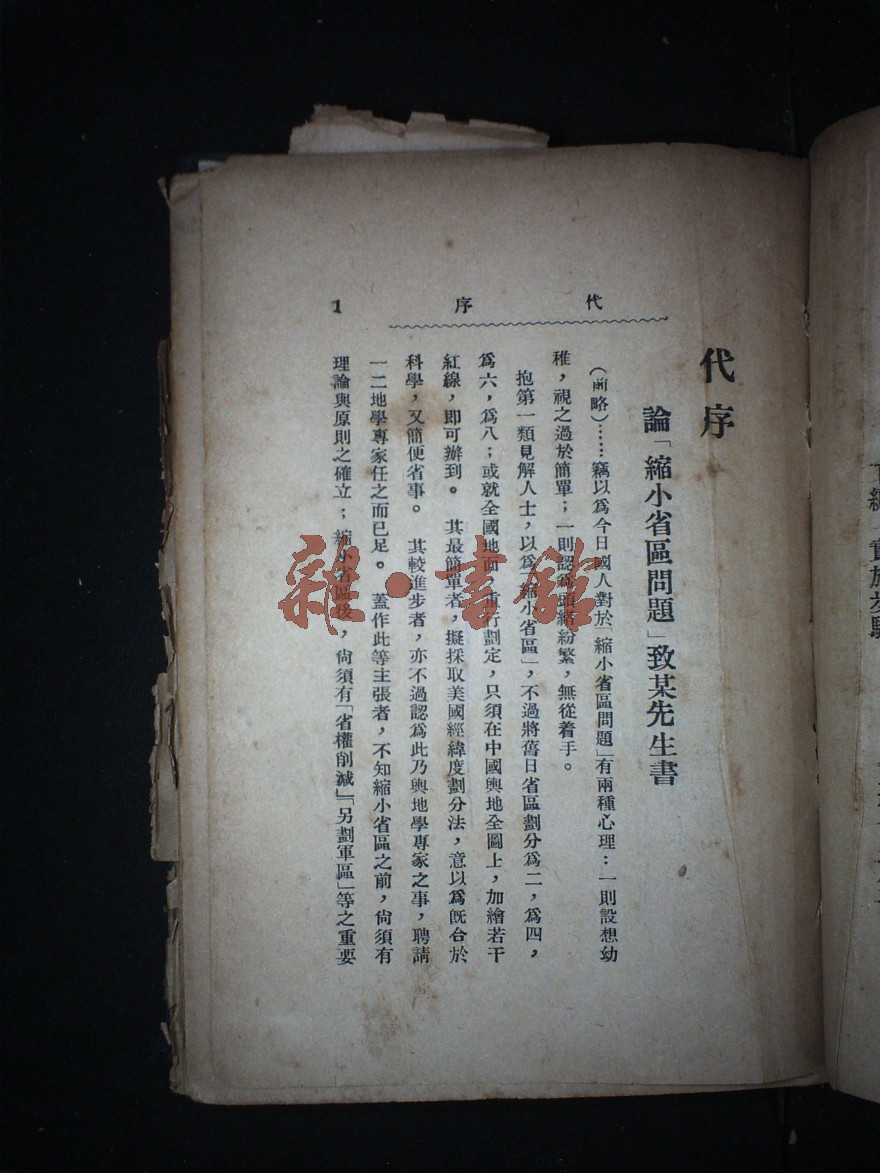 代序
論「縮小省區問題」致某先生書
代序 1
（前略）……竊以爲今日國人對於「縮小省區問題」有兩種心理：一則設想幼
稚，視之過於簡單；一則認爲頭緒紛繁，無從着手。
抱第一類見解人士，以爲「縮小省區」，不過將舊日省區劃分爲二，爲四，
爲六，爲八；或就全國地面，重行劃定，只須在中國輿地全圖上，加繪若干
紅線，即可辦到。 其最簡單者，擬採取美國經緯度劃分法，意以爲旣合於
科學，又簡便省事。 其較進步者，亦不過認爲此乃輿地學專家之事，聘請
一二地學專家任之而已足。 蓋作此等主張者，不知縮小省區之前，尙須有
理論與原則之確立；縮小省區後，尙須有「省權削減」「另劃軍區」等之重要
雜·書館